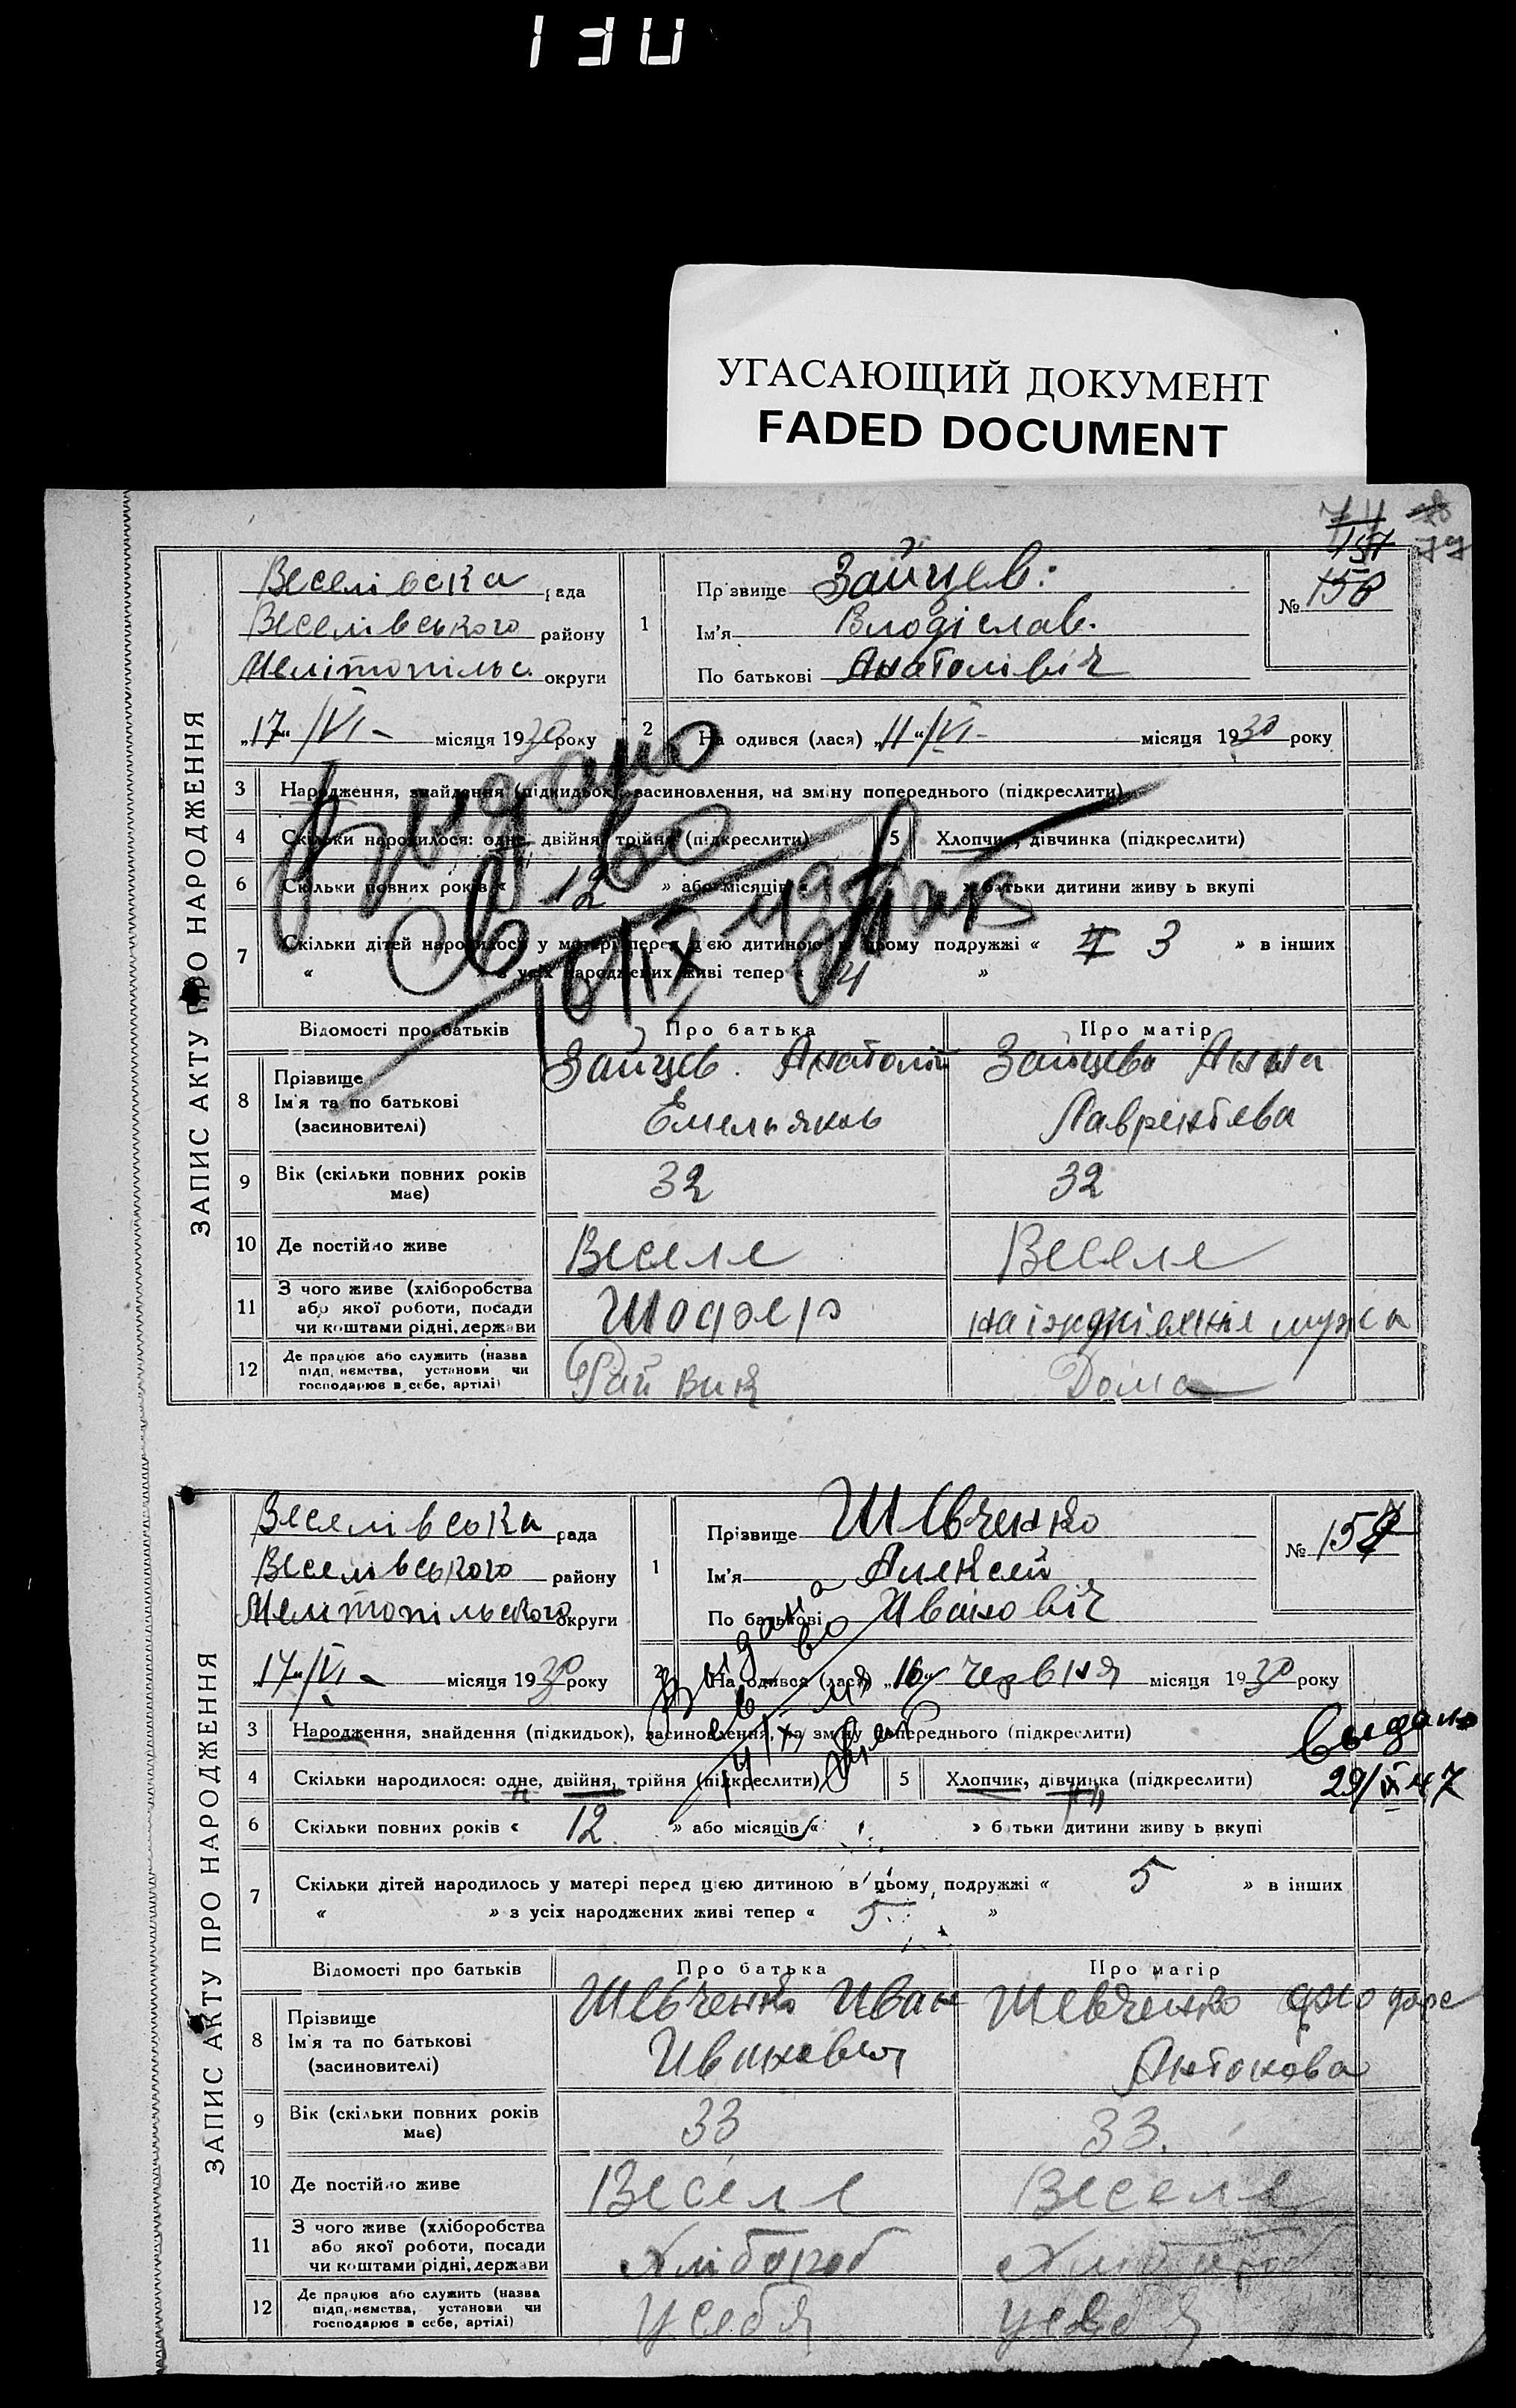 130
УГАСАЮЩИЙ ДОКУМЕНТ
FADED DOCUMENT
79
157
ЗАПИС АКТУ ПРО НАРОДЖЕННЯ
Веселівска рада
Веселівського району
Мелітопільс. округи
„17“ /VI - місяця 1930 року
1 Прізвище Зайцев.
Ім'я Влодіслав.
По батькові Анатолівіч
№ 156
2 На одився (лася) „11“ /VI - місяця 1930 року
3 Народження, знайдення (підкидьок), засиновлення, на зміну попереднього (підкреслити)
4 Скільки народилося: одне, двійня, трійня (підкреслити) 5 Хлопчик, дівчинка (підкреслити)
6 Скільки повних років « 12 » або місяців « » батьки дитини живу ь вкупі
7 Скільки дітей народилось у матері перед цією дитиною в цьому подружжі « 3 » в інших
« » з усіх народжених живі тепер « 4 »
Видано
16/IX
Відомості про батьків Про батька Про матір
8 Прізвище Ім'я та по батькові (засиновителі)
Зайцев Анатолій Зайцева Анна
Емельянов Лаврентева
9 Вік (скільки повних років має) 32 32
10 Де постійно живе Веселе Веселе
11 З чого живе (хліборобства або якої роботи, посади чи коштами рідні, держави Шофер на іждівенія мужа
12 Де працює або служить (назва підп иємства, установи чи господарює в себе, артілі) Рай Вик Дома
ЗАПИС АКТУ ПРО НАРОДЖЕННЯ
Веселівська рада
Веселівського району
Мелітопільского округи
„17“ /VI - місяця 1930 року
1 Прізвище Шевченко
Ім'я Алексей
По батькові Иванович
№ 157
2 На одився (лася) „16“ червня місяця 1930 року
3 Народження, знайдення (підкидьок), засиновлення, на зміну попереднього (підкреслити)
Видано
14/IX
выдано
29/IX 47
4 Скільки народилося: одне, двійня, трійня (підкреслити) 5 Хлопчик, дівчинка (підкреслити)
6 Скільки повних років « 12 » або місяців « » батьки дитини живу ь вкупі
7 Скільки дітей народилось у матері перед цією дитиною в цьому подружжі « 5 » в інших
« » з усіх народжених живі тепер « 5 »
Відомості про батьків Про батька Про матір
8 Прізвище Ім'я та по батькові (засиновителі)
Шевченко Иван Шевченко
Иванович Антонова
9 Вік (скільки повних років має) 33 33.
10 Де постійно живе Веселе Веселе
11 З чого живе (хліборобства або якої роботи, посади чи коштами рідні, держави Хлібороб Хлібороб
12 Де працює або служить (назва підп иємства, установи чи господарює в себе, артілі) У себя У себя